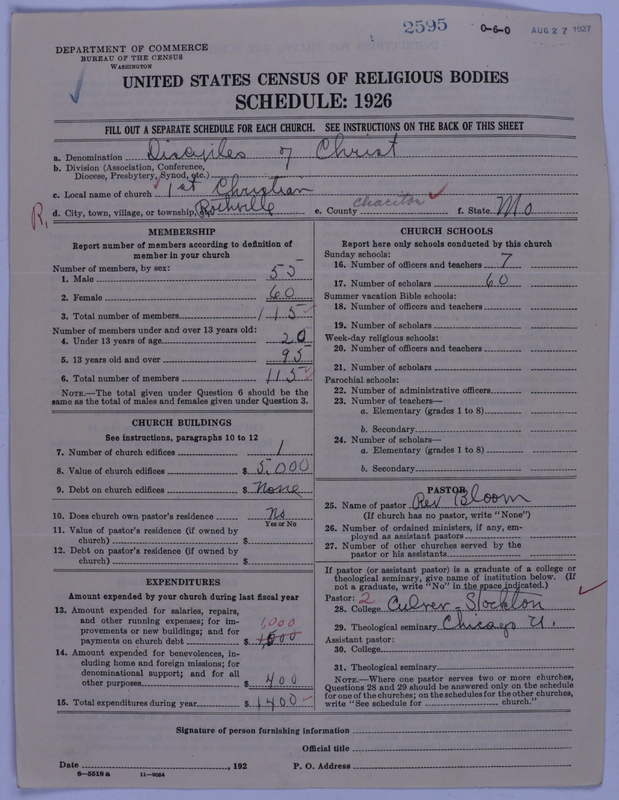 2595 0-6-0 AUG 27 1927
DEPARTMENT OF COMMERCE
BUREAU OF THE CENSUS
WASHINGTON
UNITED STATES CENSUS OF RELIGIOUS BODIES
SCHEDULE: 1926
FILL OUT A SEPARATE SCHEDULE FOR EACH CHURCH. SEE INSTRUCTIONS ON THE BACK OF THIS SHEET
a. Denomination Disciples of Christ
b. Division (Association, Conference,
Diocese, Presbytery, Synod, etc.)
c. Local name of church 1st Christian
R, d. City, town, village, or township, Rothville e. County Chariton f. State Mo
MEMBERSHIP
Report number of members according to definition of
member in your church
Number of members, by sex:
1. Male 55
2. Female 60
3. Total number of members 115
Number of members under and over 13 years old:
4. Under 13 years of age 20
5. 13 years old and over 95
6. Total number of members 115
NOTE.—The total given under Question 6 should be
the same as the total of males and females given under Question 3.
CHURCH BUILDINGS
See instructions, paragraphs 10 to 12
7. Number of church edifices 1
8. Value of church edifices $ 5,000
9. Debt on church edifices $ None
10. Does church own pastor's residence No
Yes or No
11. Value of pastor's residence (if owned by
church) $
12. Debt on pastor's residence (if owned by
church) $
EXPENDITURES
Amount expended by your church during last fiscal year
13. Amount expended for salaries, repairs,
and other running expenses; for im-
provements or new buildings; and for 1,000
payments on church debt $
14. Amount expended for benevolences, in-
cluding home and foreign missions; for
denominational support; and for all
other purposes $ 400
15. Total expenditures during year $ 1400
CHURCH SCHOOLS
Report here only schools conducted by this church
Sunday schools:
16. Number of officers and teachers 7
17. Number of scholars 60
Summer vacation Bible schools:
18. Number of officers and teachers
19. Number of scholars
Week-day religious schools:
20. Number of officers and teachers
21. Number of scholars
Parochial schools:
22. Number of administrative officers
23. Number of teachers—
a. Elementary (grades 1 to 8)
b. Secondary
24. Number of scholars—
a. Elementary (grades 1 to 8)
b. Secondary
PASTOR
25. Name of pastor Rev Bloom
(If church has no pastor, write "None")
26. Number of ordained ministers, if any, em-
ployed as assistant pastors
27. Number of other churches served by the
pastor or his assistants
If pastor (or assistant pastor) is a graduate of a college or
theological seminary, give name of institution below. (If
not a graduate, write "No" in the space indicated.)
Pastor: 2
28. College Culver-Stockton
29. Theological seminary Chicago U.
Assistant pastor:
30. College
31. Theological seminary
NOTE.—Where one pastor serves two or more churches,
Questions 28 and 29 should be answered only on the schedule
for one of the churches; on the schedules for the other churches,
write "See schedule for church."
Signature of person furnishing information
Official title
Date , 192 P. O. Address
6—5518a 11—9084